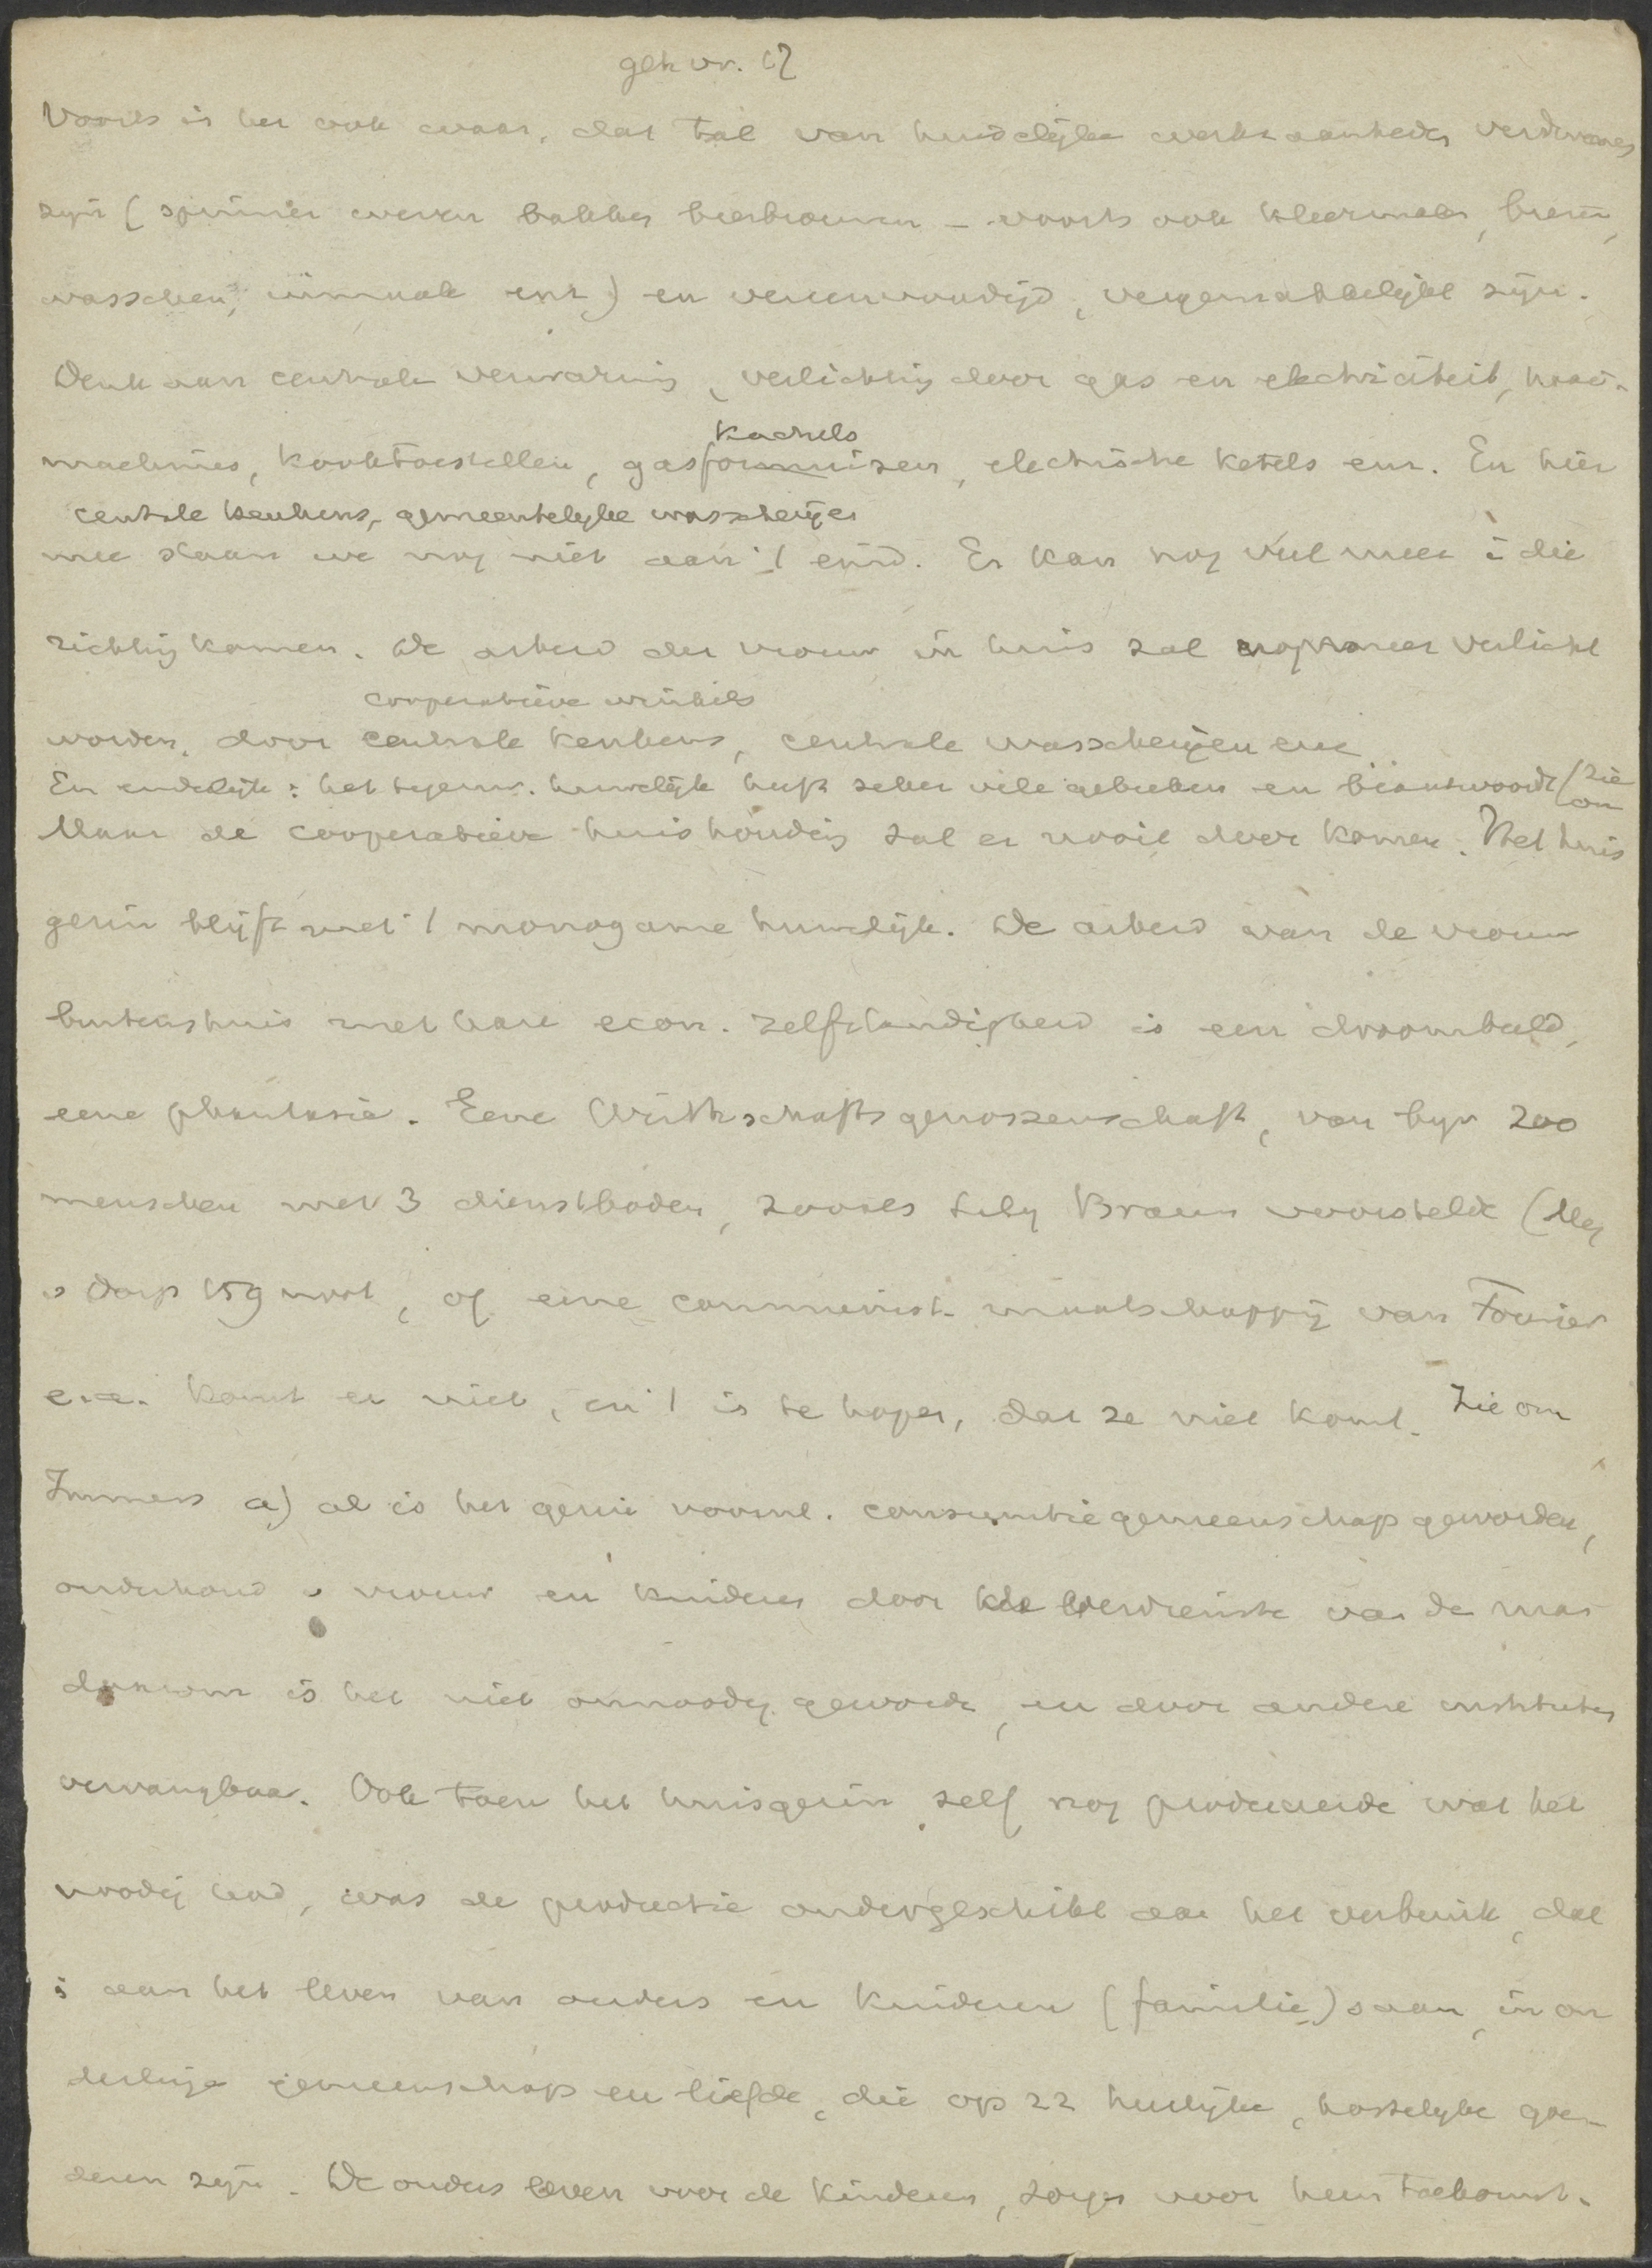 geh vr. 17
Voorts is het ook waar, dat tal van huiselijke werkzaamheden verdwenen
zijn (spinnen weven bakken bierbrouwen - voorts ook kleermaken, breien,
wasschen, inmaak enz) en vereenvoudigd, vergemakkelijkt zijn.
Denk aan centrale verwarming, verlichting door gas en electriciteit, naai-
kachels
machines, kooktoestellen, gasfornuizen, electrische ketels enz. En hier
centrale keukens, gemeentelijke wasscherijen
mee staan we nog niet aan 't eind. Er kan nog veel meer i die
richting komen. De arbeid der vrouw in huis zal nog meer verlicht
cooperatieve winkels
worden, door centrale keukens, centrale wasscherijen enz
En eindelijk: het tegenw. huwelijk heeft zeker vele gebreken en beantwoordt (zie om
Maar de cooperatieve huishouding zal er nooit door komen. Het huis
gezin blijft met 't monogame huwelijk. De arbeid van de vrouw
buitenshuis met hare econ. zelfstandigheid is een droombeeld,
eene phantasie. Eene Wirthschaftsgenossenschaft, van bijv 200
menschen met 3 dienstboden, zooals Lily Braun voorstelde (Mej
v Dorp 159 noot, of eene communist. maatschappij van Fourier
e.a. komt er niet, en 't is te hopen, dat ze niet komt. Zie om
Immers a) al is het gezin vooral. consumtiegemeenschap geworden,
onderhoud v vrouw en kinderen door de verdienste van de man
daarom is het niet onnoodig geworden, en door andere instituten
vervangbaar. Ook toen het huisgezin zelf nog produceerde wat het
noodig had, was de productie ondergeschikt aan het verbruik, dat
is aan het leven van ouders en kinderen (familie) saam, in on
derlinge gemeenschap en liefde, die op zz heerlijke, kostelijke goe-
deren zijn. De ouders leven voor de kinderen, zorgen voor hun toekomst.